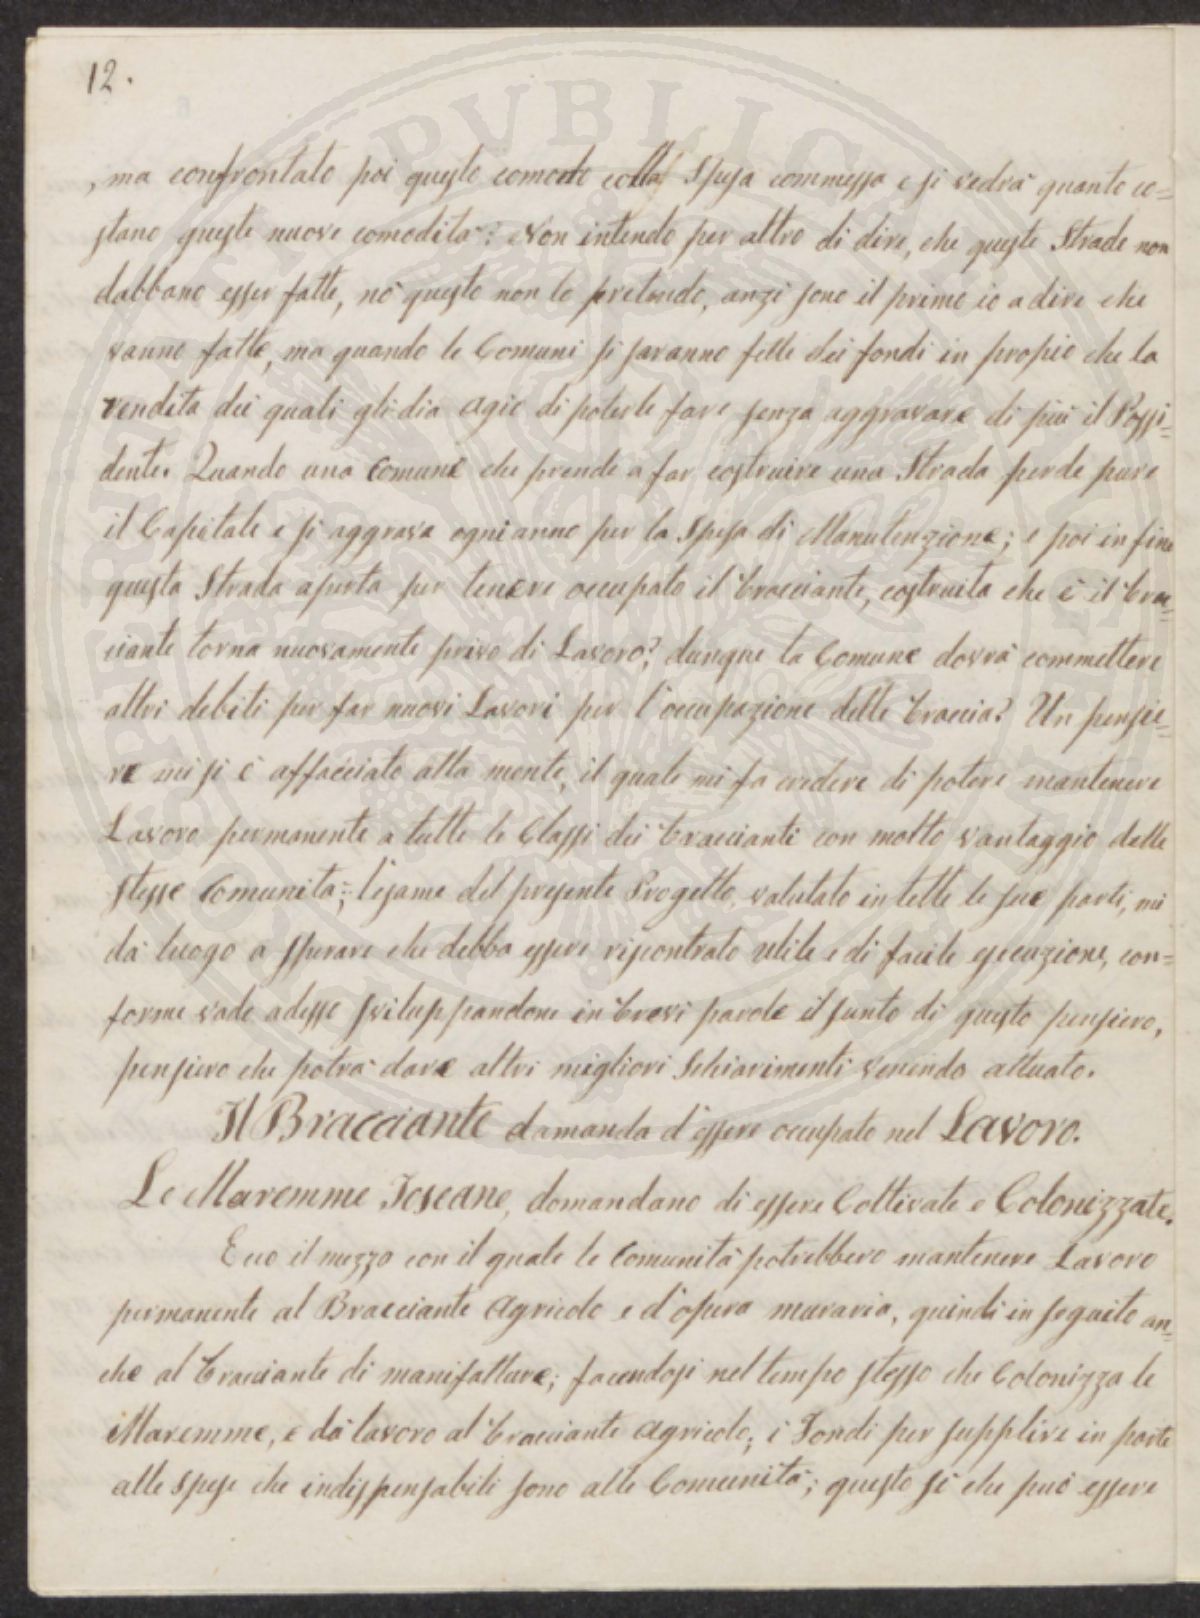 12.
, ma confrontato poi questo comodo colla Spesa commessa e si vedrà quanto co=
stano queste nuove comodità: Non intendo per altro di dire, che queste Strade non
dabbano esser fatte, nò questo non lo pretendo, anzi sono il primo io a dire che
vanno fatte, ma quando le Comuni si saranno fatte dei fondi in propio che la
rendita dei quali gli dia agio di poterle fare senza aggravare di più il Possi=
dente. Quando una Comune che prende a far costruire una Strada perde pure
il Capitale e si aggrava ogni anno per la Spesa di Manutenzione; e poi in fine
questa Strada aperta per tenere occupato il bracciante, costruita che è il brac=
ciante torna nuovamente privo di Lavoro? dunque la Comune dovrà commettere
altri debiti per far nuovi Lavori per l'occupazione delle braccia? Un pensie=
re mi si è affacciato alla mente, il quale mi fa credere di potere mantenere
Lavoro permanente a tutte le Classi dei braccianti con molto vantaggio delle
stesse Comunità; l'esame del presente Progetto, valutato in tette le sue parti, mi
dà luogo a sperare che debba essere riscontrato utile e di facile esecuzione, con=
forme vado adesso sviluppandone in brevi parole il sunto di questo pensiero,
pensiero che potrà dare altri migliori Schiarimenti venendo attuato.
Il Bracciante damanda d'essere occupato nel Lavoro.
Le Maremme Toscane, domandano di essere Coltivate e Colonizzate.
Ecco il mezzo con il quale le Comunità potrebbero mantenere Lavoro
permanente al Bracciante Agricolo e d'opera muraria, quindi in seguito an=
che al bracciante di manifatture; facendosi nel tempo stesso che Colonizza le
Maremme, e dà lavoro al bracciante Agricolo; i Fondi per supplire in parte
alle Spese che indispensabili sono alle Comunità; questo sì che può essere